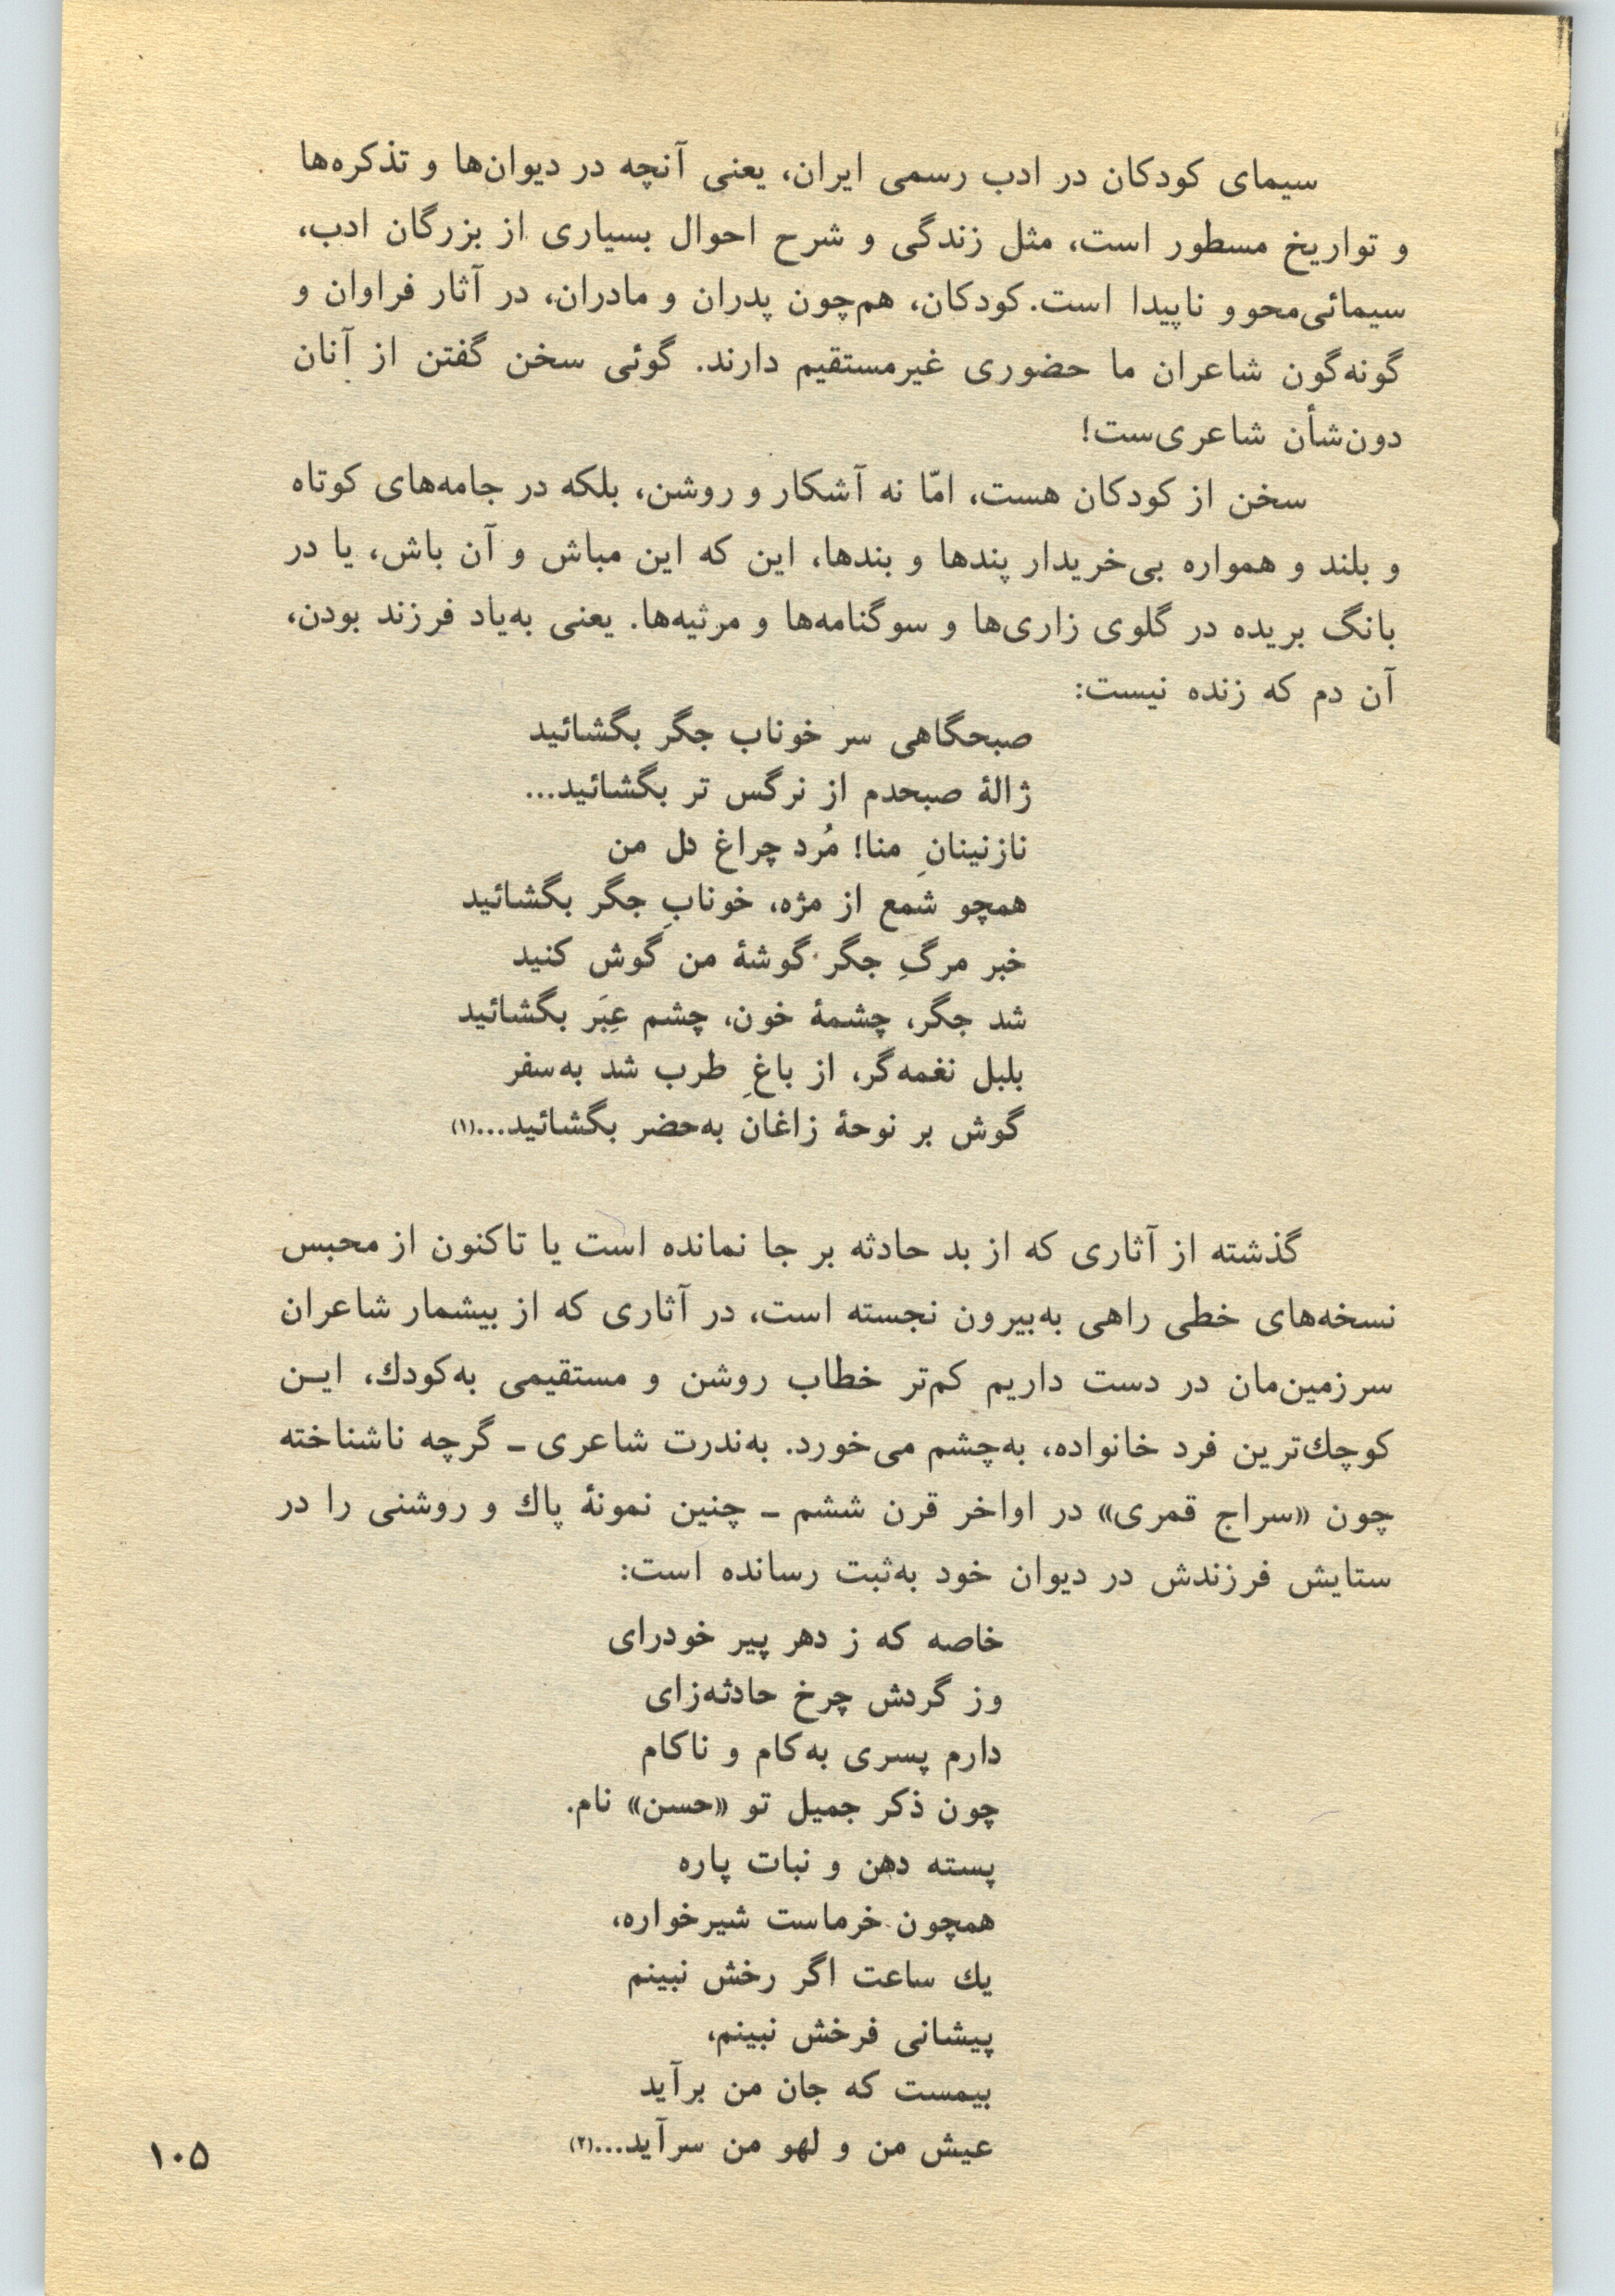 سیمای کودکان در ادب رسمی ایران، یعنی آنچه در دیوان‌ها و تذکره‌ها
و تواریخ مسطور است، مثل زندگی و شرح احوال بسیاری از بزرگان ادب،
سیمائی‌محو و ناپیدا است. کودکان، هم‌چون پدران و مادران، در آثار فراوان و
گونه‌گون شاعران ما حضوری غیرمستقیم دارند. گوئی سخن گفتن از آنان
دون‌شأن شاعری‌ست!
سخن از کودکان هست، امّا نه آشکار و روشن، بلکه در جامه‌های کوتاه
و بلند و همواره بی‌خریدار پندها و بندها، این که این مباش و آن باش، یا در
بانگ بریده در گلوی زاری‌ها و سوگنامه‌ها و مرثیه‌ها. یعنی به‌یاد فرزند بودن،
آن دم که زنده نیست:
صبحگاهی سر خوناب جگر بگشائید
ژالهٔ صبحدم از نرگس تر بگشائید...
نازنینانِ منا! مُرد چراغ دل من
همچو شمع از مژه، خونابِ جگر بگشائید
خبر مرگِ جگر گوشهٔ من گوش کنید
شد جگر، چشمهٔ خون، چشم عِبَر بگشائید
بلبل نغمه‌گر، از باغِ طرب شد به‌سفر
گوش بر نوحهٔ زاغان به‌حضر بگشائید...(۱)
گذشته از آثاری که از بد حادثه بر جا نمانده است یا تاکنون از محبس
نسخه‌های خطی راهی به‌بیرون نجسته است، در آثاری که از بیشمار شاعران
سرزمین‌مان در دست داریم کم‌تر خطاب روشن و مستقیمی به‌کودك، ایـن
کوچك‌ترین فرد خانواده، به‌چشم می‌خورد. به‌ندرت شاعری ـ گرچه ناشناخته
چون «سراج قمری» در اواخر قرن ششم ـ چنین نمونهٔ پاك و روشنی را در
ستایش فرزندش در دیوان خود به‌ثبت رسانده است:
خاصه که ز دهر پیر خودرای
وز گردش چرخ حادثه‌زای
دارم پسری به‌کام و ناکام
چون ذکر جمیل تو «حسن» نام.
پسته دهن و نبات پاره
همچون خرماست شیرخواره،
یك ساعت اگر رخش نبینم
پیشانی فرخش نبینم،
بیمست که جان من برآید
عیش من و لهو من سرآید...(۲)
۱۰۵